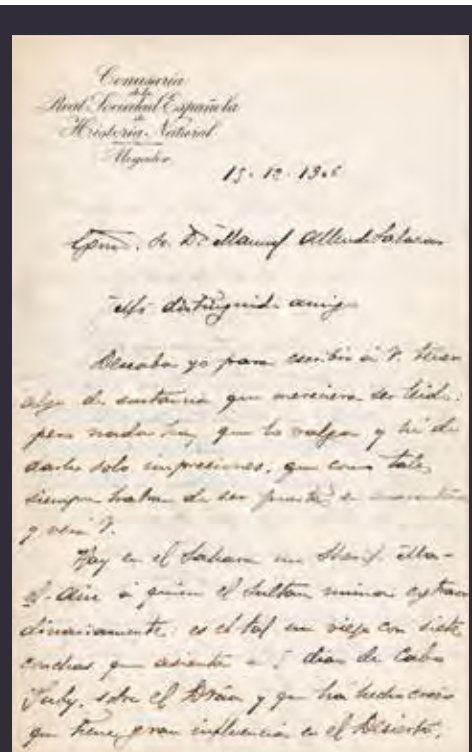 Comisaría
de la
Real Sociedad Española
de
Historia Natural
Mogador
15-12-1906
Excmo. Sr. Dn. Manuel Allende Salazar
Mi distinguido amigo
Deseaba yo para escribir á V. tener
algo de sustancia que mereciera ser leido;
pero nada hay que lo valga y hé de
darle solo impresiones, que como tales
siempre habran de ser
y verá V.
Hay en el Sahara un Sherif Ma-
el-Ain á quien el Sultan mima extraor
dinariamente: es el tal un viejo con siete
conchas que asienta a 5 dias de Cabo
Juby, sobre el Dráa y que há hecho creer
que tiene gran influencia en el Desierto,